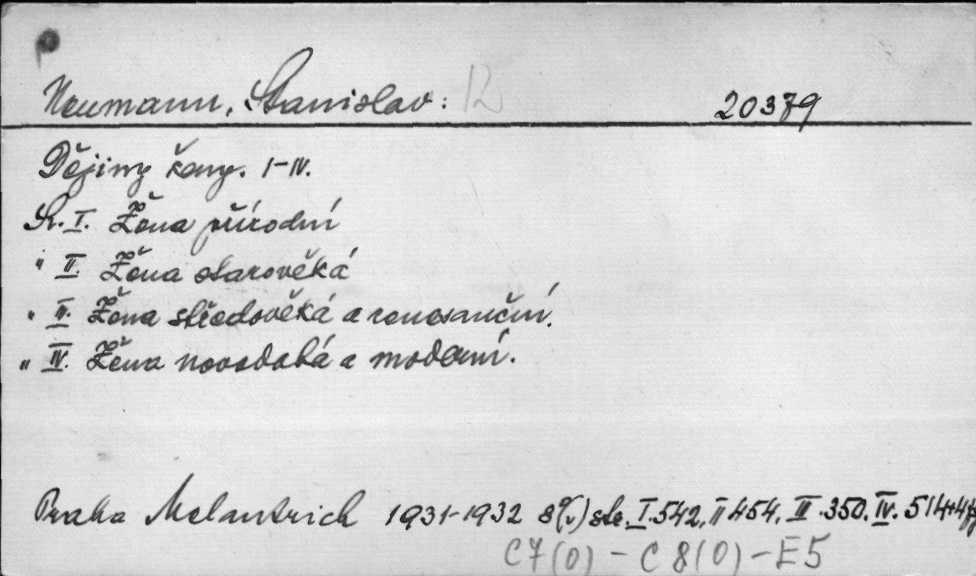 Neumann, Stanislav: 12
20379
Dějiny ženy. I-IV.
Sv. I. Žena přírodní
" II. Žena starověká
" III. Žena středověká a renesanční.
" IV. Žena novodobá a moderní.
Praha Melantrich 1931-1932 8° (v) str. I. 542, II 454. III. 350. IV. 514+4
C7(0) - C8(0) - E5